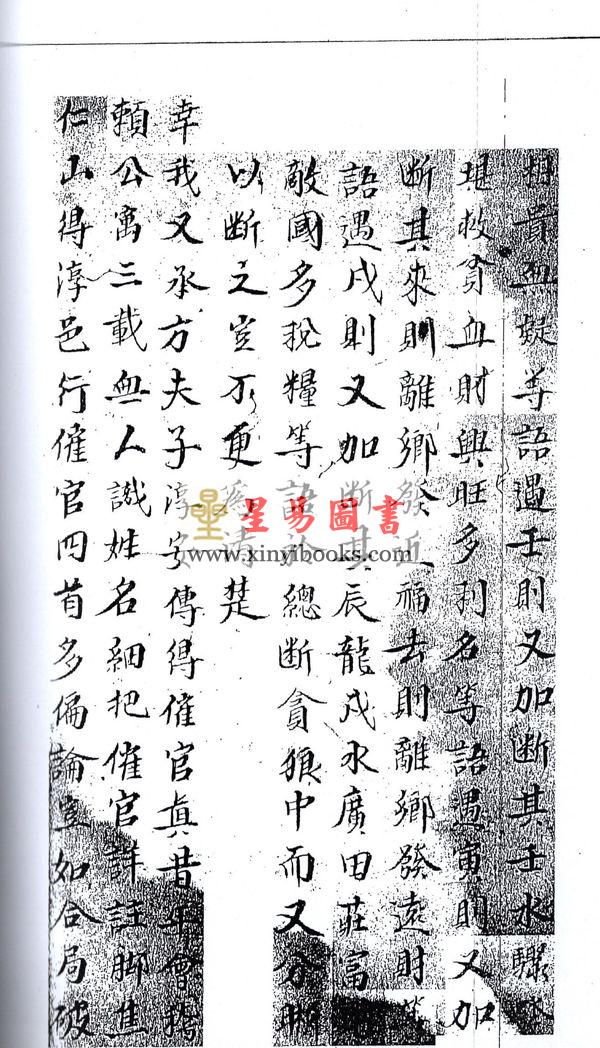 無疑等語遇壬則又加斷其壬水驟
救貧血財興旺多利名等語遇寅則又加
斷其來則離鄉發近福去則離鄉發遠財等
語遇戌則又加斷其辰龍戌水廣田莊富
敵國多稅糧等語於總斷貪狼中而又分
以斷之豈不更為清楚
幸我又承方夫子淳安傳得催官真昔年會
賴公寓三載無人識姓名細把催官詳註腳
仁山得淳邑行催官四首多偏論豈如合局破
星易圖書
www.xinyibooks.com